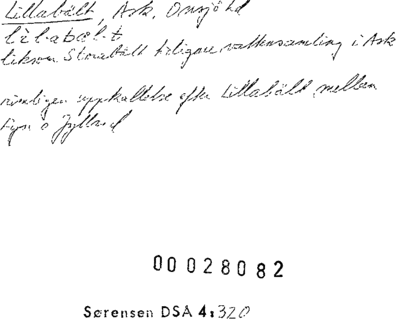 Lillabält, Ask, Onsjö hd
lil·abæl·t
liksom Storabält tidigare vattensamling i Ask
rimligen uppkallelse efter Lillabält mellan
Fyn o Jylland
00 028082
Sørensen DSA 4:320